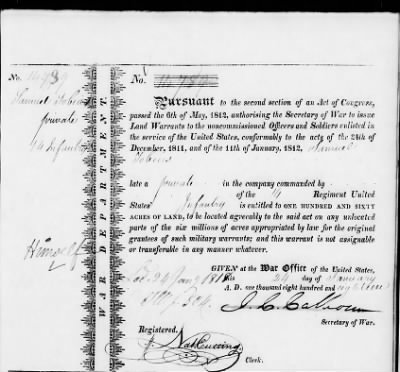 No. 14789
Samuel
private
4 Infantry
Himself
WAR DEPARTMENT.
No. 14,789
Pursuant to the second section of an Act of Congress,
passed the 6th of May, 1812, authorising the Secretary of War to issue
Land Warrants to the noncommissioned Officers and Soldiers enlisted in
the service of the United States, conformably to the acts of the 24th of
December, 1811, and of the 11th of January, 1812, Samuel
late a private in the company commanded by
of the 4 Regiment United
States' Infantry is entitled to ONE HUNDRED AND SIXTY
ACRES OF LAND, to be located agreeably to the said act on any unlocated
parts of the six millions of acres appropriated by law for the original
grantees of such military warrants; and this warrant is not assignable
or transferable in any manner whatever.
GIVEN at the War Office of the United States,
this 24 day of January
A. D. one thousand eight hundred and eighteen
24 Jany 1818
J. C. Calhoun
Secretary of War.
Registered.
Nat Cutting
Clerk.